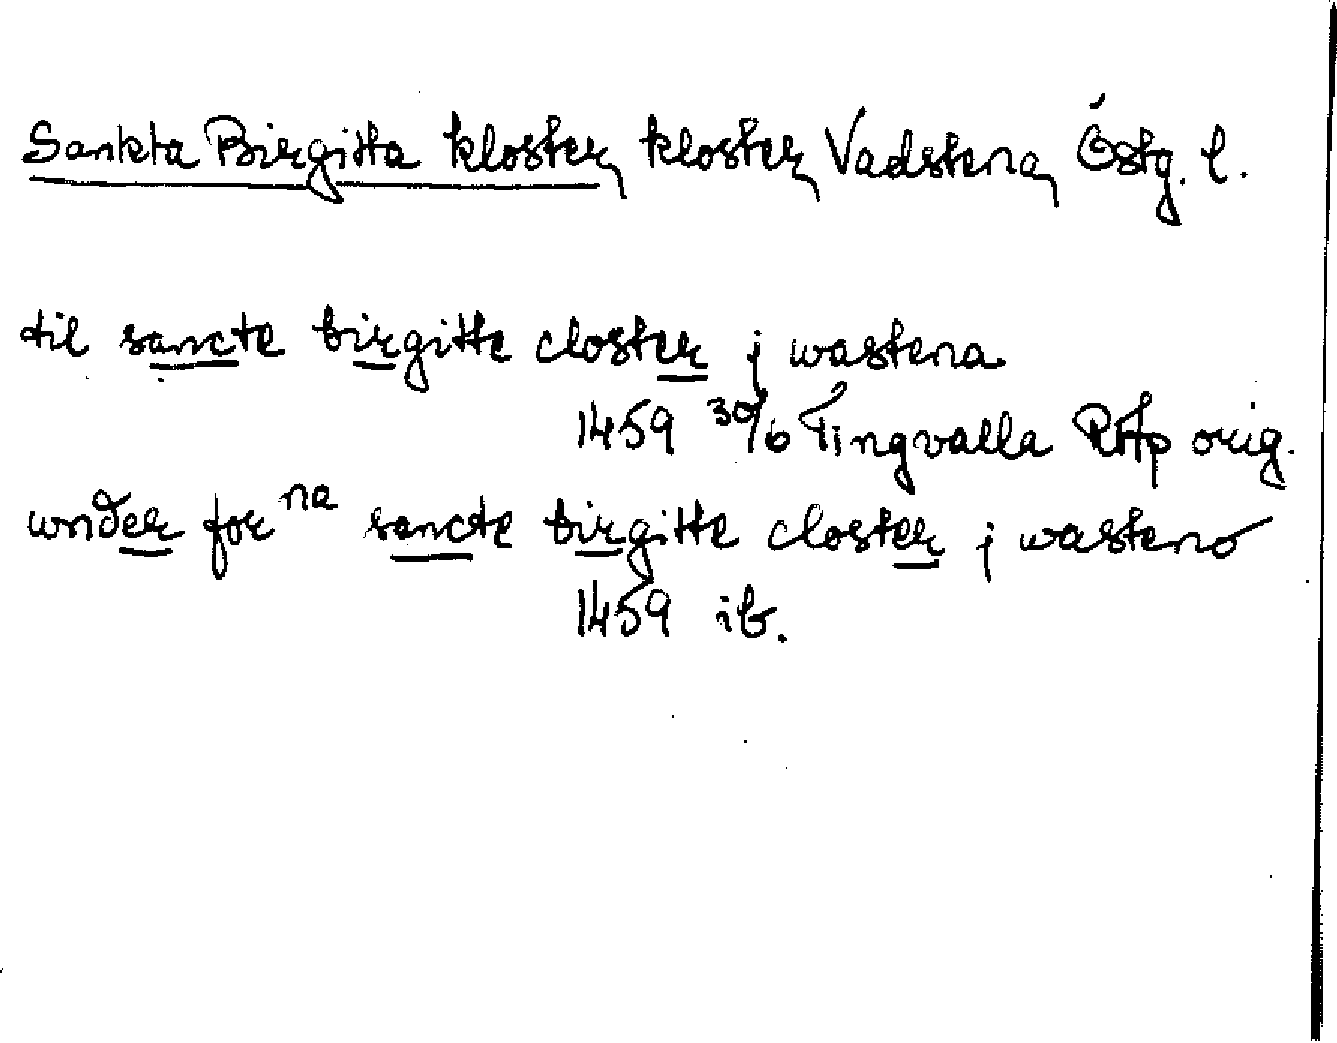 Sankta Birgitta kloster, kloster, Vadstena, Östg. l.
til sancte birgitte closter j wastena
1459 30/6 Tingvalla RAp orig.
under for na sancte birgitte closter j wasteno
1459 ib.